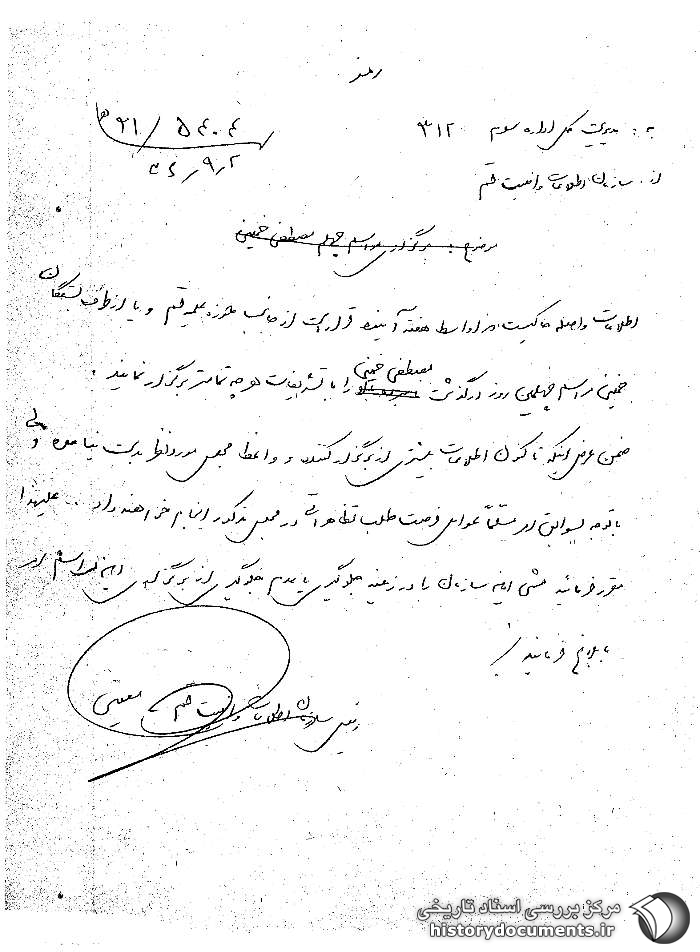 رمز
به: مدیریت کل اداره سوم ۳۱۲
۵۴۰۴ / ۲۱ ﻫ
۳۶/۹/۲
از: سازمان اطلاعات و امنیت قم
موضوع: برگزاری مراسم چهلم مصطفی خمینی
اطلاعات واصله حاکیست در اواسط هفته آینده قرار است از جانب حوزه علمیه قم و یا از طرف بستگان
خمینی مراسم چهلمین روز درگذشت مصطفی خمینی را با تشریفات هر چه تمامتر برگزار نمایند.
ضمن عرض اینکه تاکنون اطلاعات بیشتری از برگزار کننده و واعظ مجلس مورد نظر بدست نیامده ولی
با توجه بسوابق امر مسلماً عوامل فرصت طلب تظاهراتی در مجلس مذکور انجام خواهند داد.. علیهذا
مقرر فرمائید مشی این سازمان را در زمینه جلوگیری یا عدم جلوگیری از برگزاری این مراسم امر
بابلاغ فرمایند.
رئیس سازمان اطلاعات و امنیت قم معینی
مرکز بررسی اسناد تاریخی
historydocuments.ir